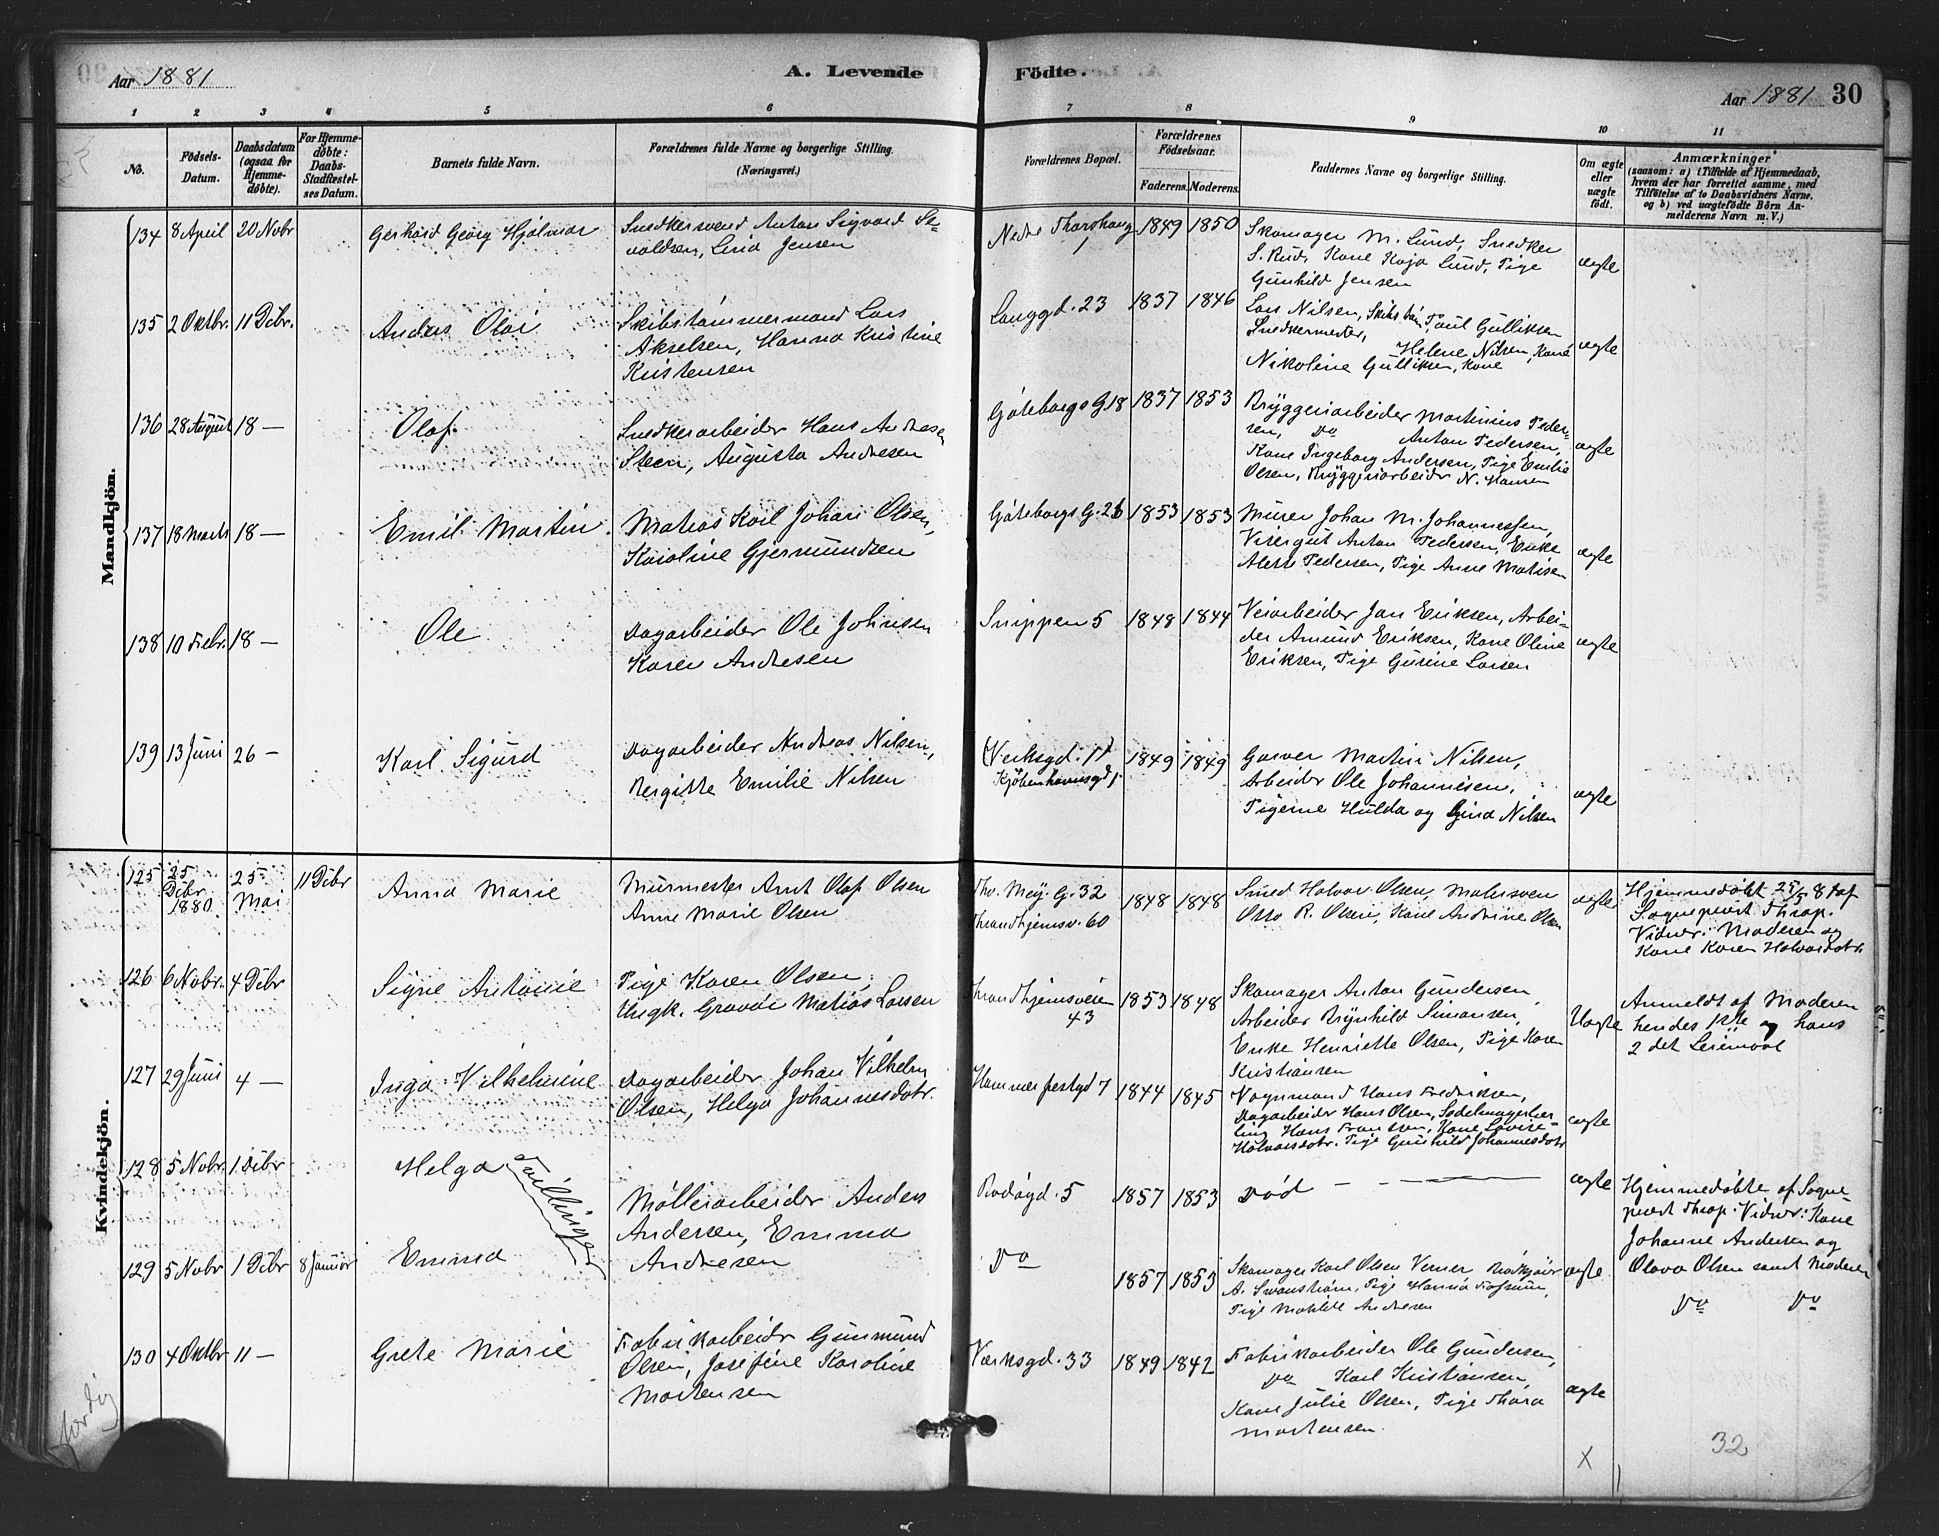 Aar 1881
A. Levende
Födte.
Aar 1881 30
1 2 3 4 5 6 7 8 9 10 11
No.
Födsels-
Datum.
Daabsdatum
(ogsaa for
Hjemme-
döbte).
For Hjemme-
döbte:
Daabs-
Stadfæstel-
ses Datum.
Barnets fulde Navn.
Forældrenes fulde Navne og borgerlige Stilling.
(Næringsvei.)
Forældrenes Bopæl.
Forældrenes
Födselsaar.
Faderens. Moderens.
Faddernes Navne og borgerlige Stilling.
Om ægte
eller
uægte
födt.
Anmærkninger
(saasom: a) i Tilfælde af Hjemmedaab,
hvem der har forrettet samme, med
Tilföielse af to Daabsvidners Navne.
og b) ved uægtefödte Börn An-
melderens Navn m. V.)
Mandkjön.
134 8 April 20 Novbr
Gerhard Georg Hjalmar
Snedkersvend Anton Sigvard
Lina Jensen
Nedre Tharshaug
1
1849 1850
Skomager M. Lund, Snedker
S. Rud, Kone Kaja Lund, Pige
Gunhild Jensen
ægte
135 2 Oktbr. 11 Dcbr.
Anders Olai
Skibstømmermand Lars
Akselsen, Hanna Kristine
Kristensen
Langgd. 23
1837 1846
Lars Nilsen, Skibstøm Paul Gulliksen
Snedkermester, Helene Nilsen, Kone
Nikoline Gulliksen, Kone
ægte
136 28 August 18 —
Olaf.
Snedkerarbeider Hans Andresen
Steen, Augusta Andresen
Göteborgs G 18
1837 1853
Bryggeriarbeider Martinius Peder-
sen, Do Anton Pedersen,
Kone Ingeborg Andersen, Pige Emilie
Olsen, Bryggeriarbeider N. Hansen
ægte
137 18 Marts 18 —
Emil Martin
Matias Karl Johan Olsen,
Karoline Gjermundsen
Göteborgs G. 26
1853 1853
Murer Johan M. Johannessen,
Visergut Anton Pedersen, Enke
Alette Pedersen, Pige Anne Matisen
ægte
138 10 Febr. 18 —
Ole
Dagarbeider Ole Johnsen
Karen Andresen
Snippen 5
1848 1844
Veiarbeider Jan Eriksen, Arbei-
der Amund Eriksen, Kone Oline
Eriksen, Pige Gurine Larsen
ægte
139 13 Juni 26 —
Karl Sigurd
Dagarbeider Andreas Nilsen,
Bergitte Emilie Nilsen
(Verksgd. 11)
Kjøbenhavnsgd 1
1849 1849
Garver Martin Nilsen,
Arbeider Ole Johannesen,
Pigerne Hulda og Gina Nilsen
ægte
Kvindekjön.
125 25
Dcbr
1880. 25
Mai 11 Dcbr
Anna Marie
Murmester Arnt Olaf Olsen
Anne Marie Olsen
Thv. Mey. G. 32
Thrandhjemsv. 60
1848 1848
Smed Halvar Olsen, Malersven
Otto R. Olsen, Kone Andrine Olsen
ægte
Hjemmedøbt 25/5 81 af
Sogneprest Thrap.
Vidner: Moderen og
Kone Karen Halvorsdotr.
126 6 Novbr. 4 Dcbr
Signe Antonie
Pige Karen Olsen,
Ungk. Gravør Matias Larsen
Thrandhjemsveien
43
1853 1848
Skomager Anton Gundersen
Arbeider Brynhild Simonsen,
Enke Henriette Olsen, Pige Karen
Kristiansen
Uægte
Anmeldt af Moderen
hendes 1ste og hans
2 det Leiermaal
127 29 Juni 4 —
Inga Vilhelmine
Dagarbeider Johan Vilhelm
Olsen, Helga Johannesdotr.
Hammerfestgd 7
1844 1845
Vognmand Hans Fredriksen,
Dagarbeider Hans Olsen, Sadelmagerlær-
ling Hans Frandsen, Kone Lovise
Halvorsdotr. Pige Gunhild Johannesdotr
ægte
128 5 Novbr. 1 Dcbr
Helga
Tvillinger
Møllerarbeider Anders
Andersen, Emma
Andresen
Bodøgd. 5
1857 1853
Død — — — —
ægte
Hjemmedøbte af Sogne-
prest Thrap. Vidner: Kone
Johanne Andersen og
Olava Olsen samt Moderen
129 5 Novbr 1 Dcbr 8 Januar
Emma
Do
1857 1853
Skomager Karl Olsen Verner
A. Svanstrøm, Pige Hanna Fossum,
Pige Mathilde Andresen
ægte
Do Do
130 4 Oktbr 11 —
Grete Marie
Fabrikarbeidr Gunmund
Olsen, Josefine Karoline
Mortensen
Værksgd. 33
1849 1842
Fabrikarbeider Ole Gundersen,
Do Karl Kristiansen,
Kone Julie Olsen, Pige Thora
Mortensen.
ægte
X
32